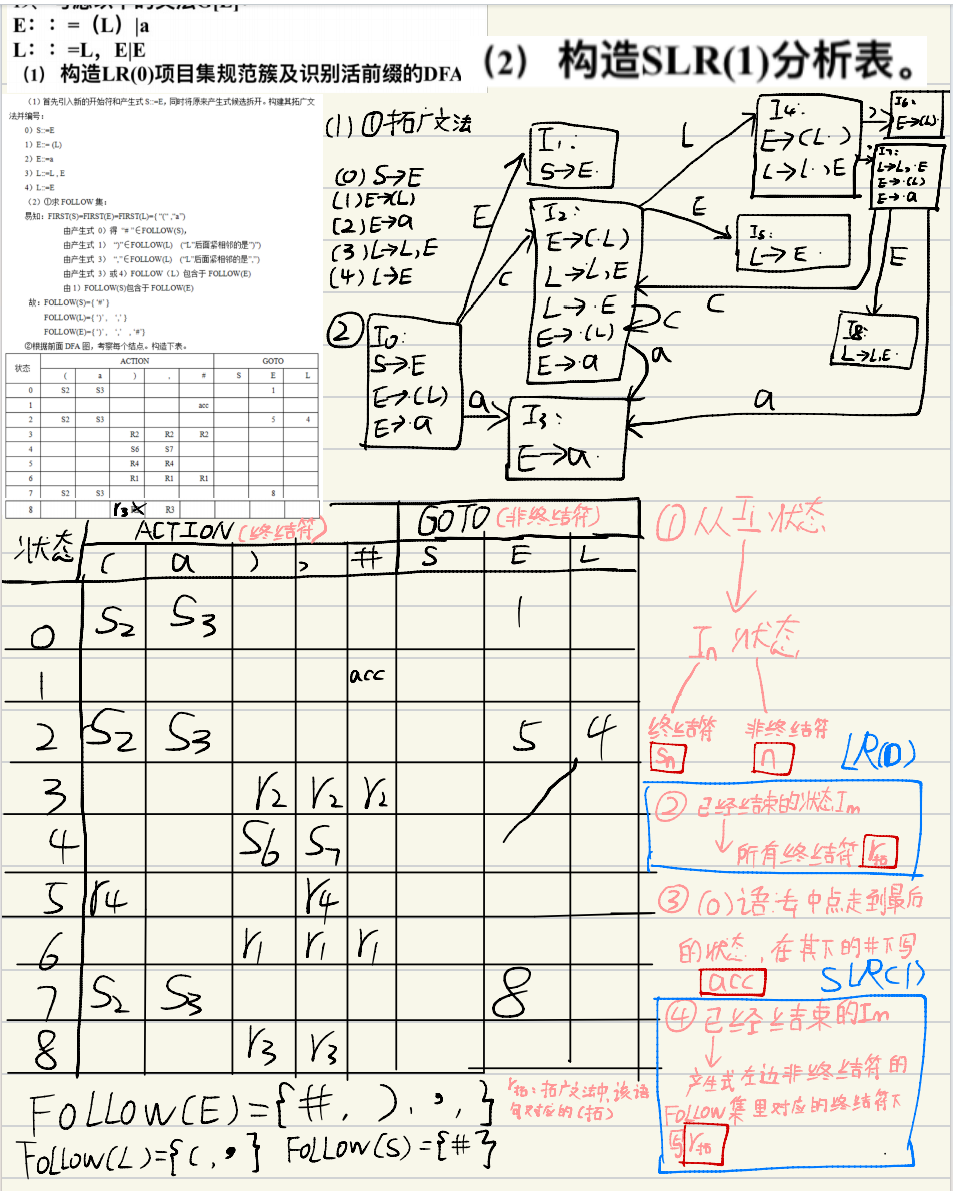 E：：=（L）|a
L：：=L，E|E
（1） 构造LR(0)项目集规范簇及识别活前缀的DFA
（2） 构造SLR(1)分析表。
（1）首先引入新的开始符和产生式 S::=E，同时将原来产生式候选拆开。构建其拓广文
法并编号：
0）S::=E
1）E::= (L)
2）E::=a
3）L::=L , E
4）L::=E
（2）①求 FOLLOW 集：
易知：FIRST(S)=FIRST(E)=FIRST(L)={ "(" ,"a"}
由产生式 0）得 "# "∈FOLLOW(S),
由产生式 1） ")"∈FOLLOW(L) ("L"后面紧相邻的是")")
由产生式 3） ","∈FOLLOW(L) ("L"后面紧相邻的是",")
由产生式 3）或 4）FOLLOW（L）包含于 FOLLOW(E)
由 1）FOLLOW(S)包含于 FOLLOW(E)
故：FOLLOW(S)={ '#' }
FOLLOW(L)={ ')'， ',' }
FOLLOW(E)={ ')'， ','，'#'}
②根据前面 DFA 图，考察每个结点。构造下表。
状态 ACTION GOTO
( a ) , # S E L
0 S2 S3 1
1 acc
2 S2 S3 5 4
3 R2 R2 R2
4 S6 S7
5 R4 R4
6 R1 R1 R1
7 S2 S3 8
8 r3 R3
(1) ①拓广文法
(0) S→E
(1) E→(L)
(2) E→a
(3) L→L,E
(4) L→E
②
I0:
S→E
E→·(L)
E→·a
I1:
S→E·
I2:
E→(·L)
L→·L,E
L→·E
E→·(L)
E→·a
I3:
E→a·
I4:
E→(L·)
L→L·,E
I5:
L→E·
I6:
E→(L)·
I7:
L→L,·E
E→·(L)
E→·a
I8:
L→L,E·
E
(
a
L
E
(
a
)
,
E
(
a
状态 ACTION (终结符) GOTO (非终结符)
( a ) , # S E L
0 S2 S3 1
1 acc
2 S2 S3 5 4
3 r2 r2 r2
4 S6 S7
5 r4 r4
6 r1 r1 r1
7 S2 S3 8
8 r3 r3
FOLLOW(E)={#, ), ,}
FOLLOW(L)={(, ,} FOLLOW(S)={#}
①从Ii状态
In 状态
终结符 非终结符
Sn n
LR(0)
②已经结束的状态Im
所有终结符 r拓
③(0)语句中点走到最后
的状态，在其下的#下写
acc
SLR(1)
④已经结束的Im
产生式左边非终结符的
FOLLOW集里对应的终结符下
写 r拓
r拓：拓广文法中，该语
句对应的(拓)